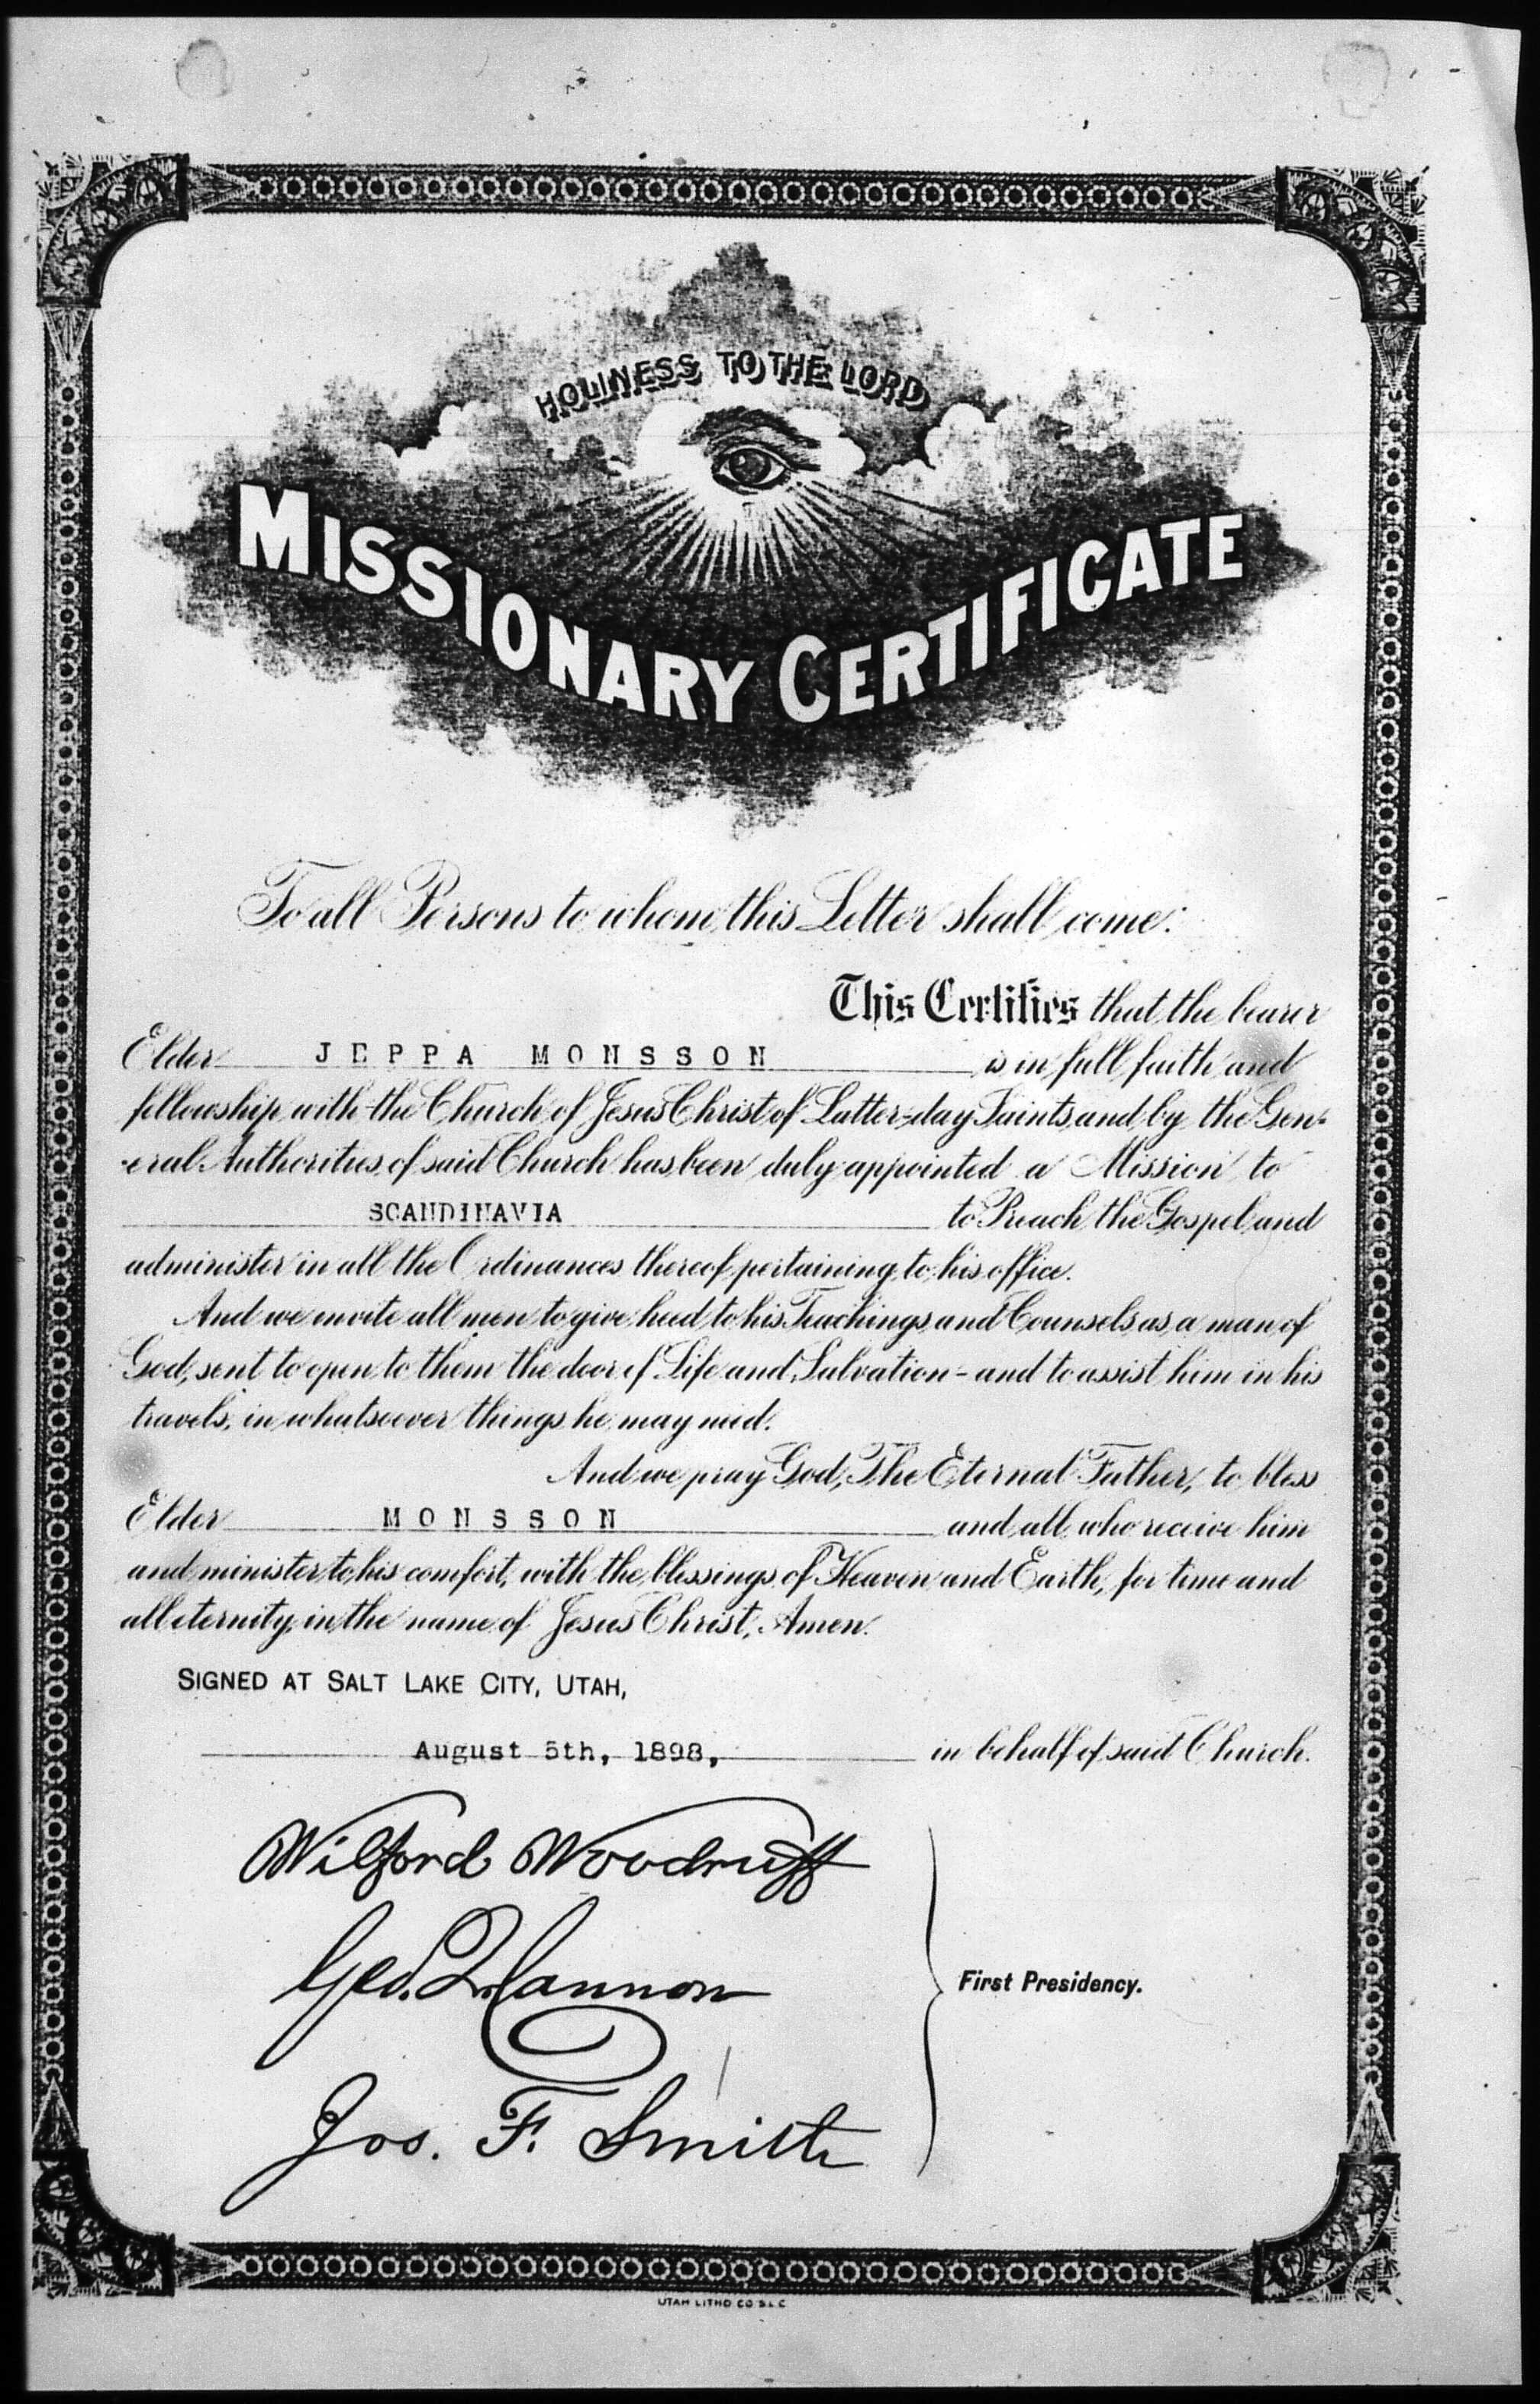 HOLINESS TO THE LORD
MISSIONARY CERTIFICATE
To all Persons to whom this Letter shall come:
This Certifies that the bearer
Elder JEPPA MONSSON is in full faith and
fellowship with the Church of Jesus Christ of Latter-day Saints, and by the Gen-
eral Authorities of said Church has been duly appointed a Mission to
SCANDINAVIA to Preach the Gospel and
administer in all the Ordinances thereof pertaining to his office.
And we invite all men to give heed to his Teachings and Counsels as a man of
God, sent to open to them the door of Life and Salvation – and to assist him in his
travels, in whatsoever things he may need.
And we pray God, The Eternal Father, to bless
Elder MONSSON and all who receive him
and minister to his comfort, with the blessings of Heaven and Earth, for time and
all eternity, in the name of Jesus Christ, Amen.
SIGNED AT SALT LAKE CITY, UTAH,
August 5th, 1898, in behalf of said Church.
Wilford Woodruff
Geo. Q. Cannon
First Presidency.
Jos. F. Smith
UTAH LITHO CO S.L.C